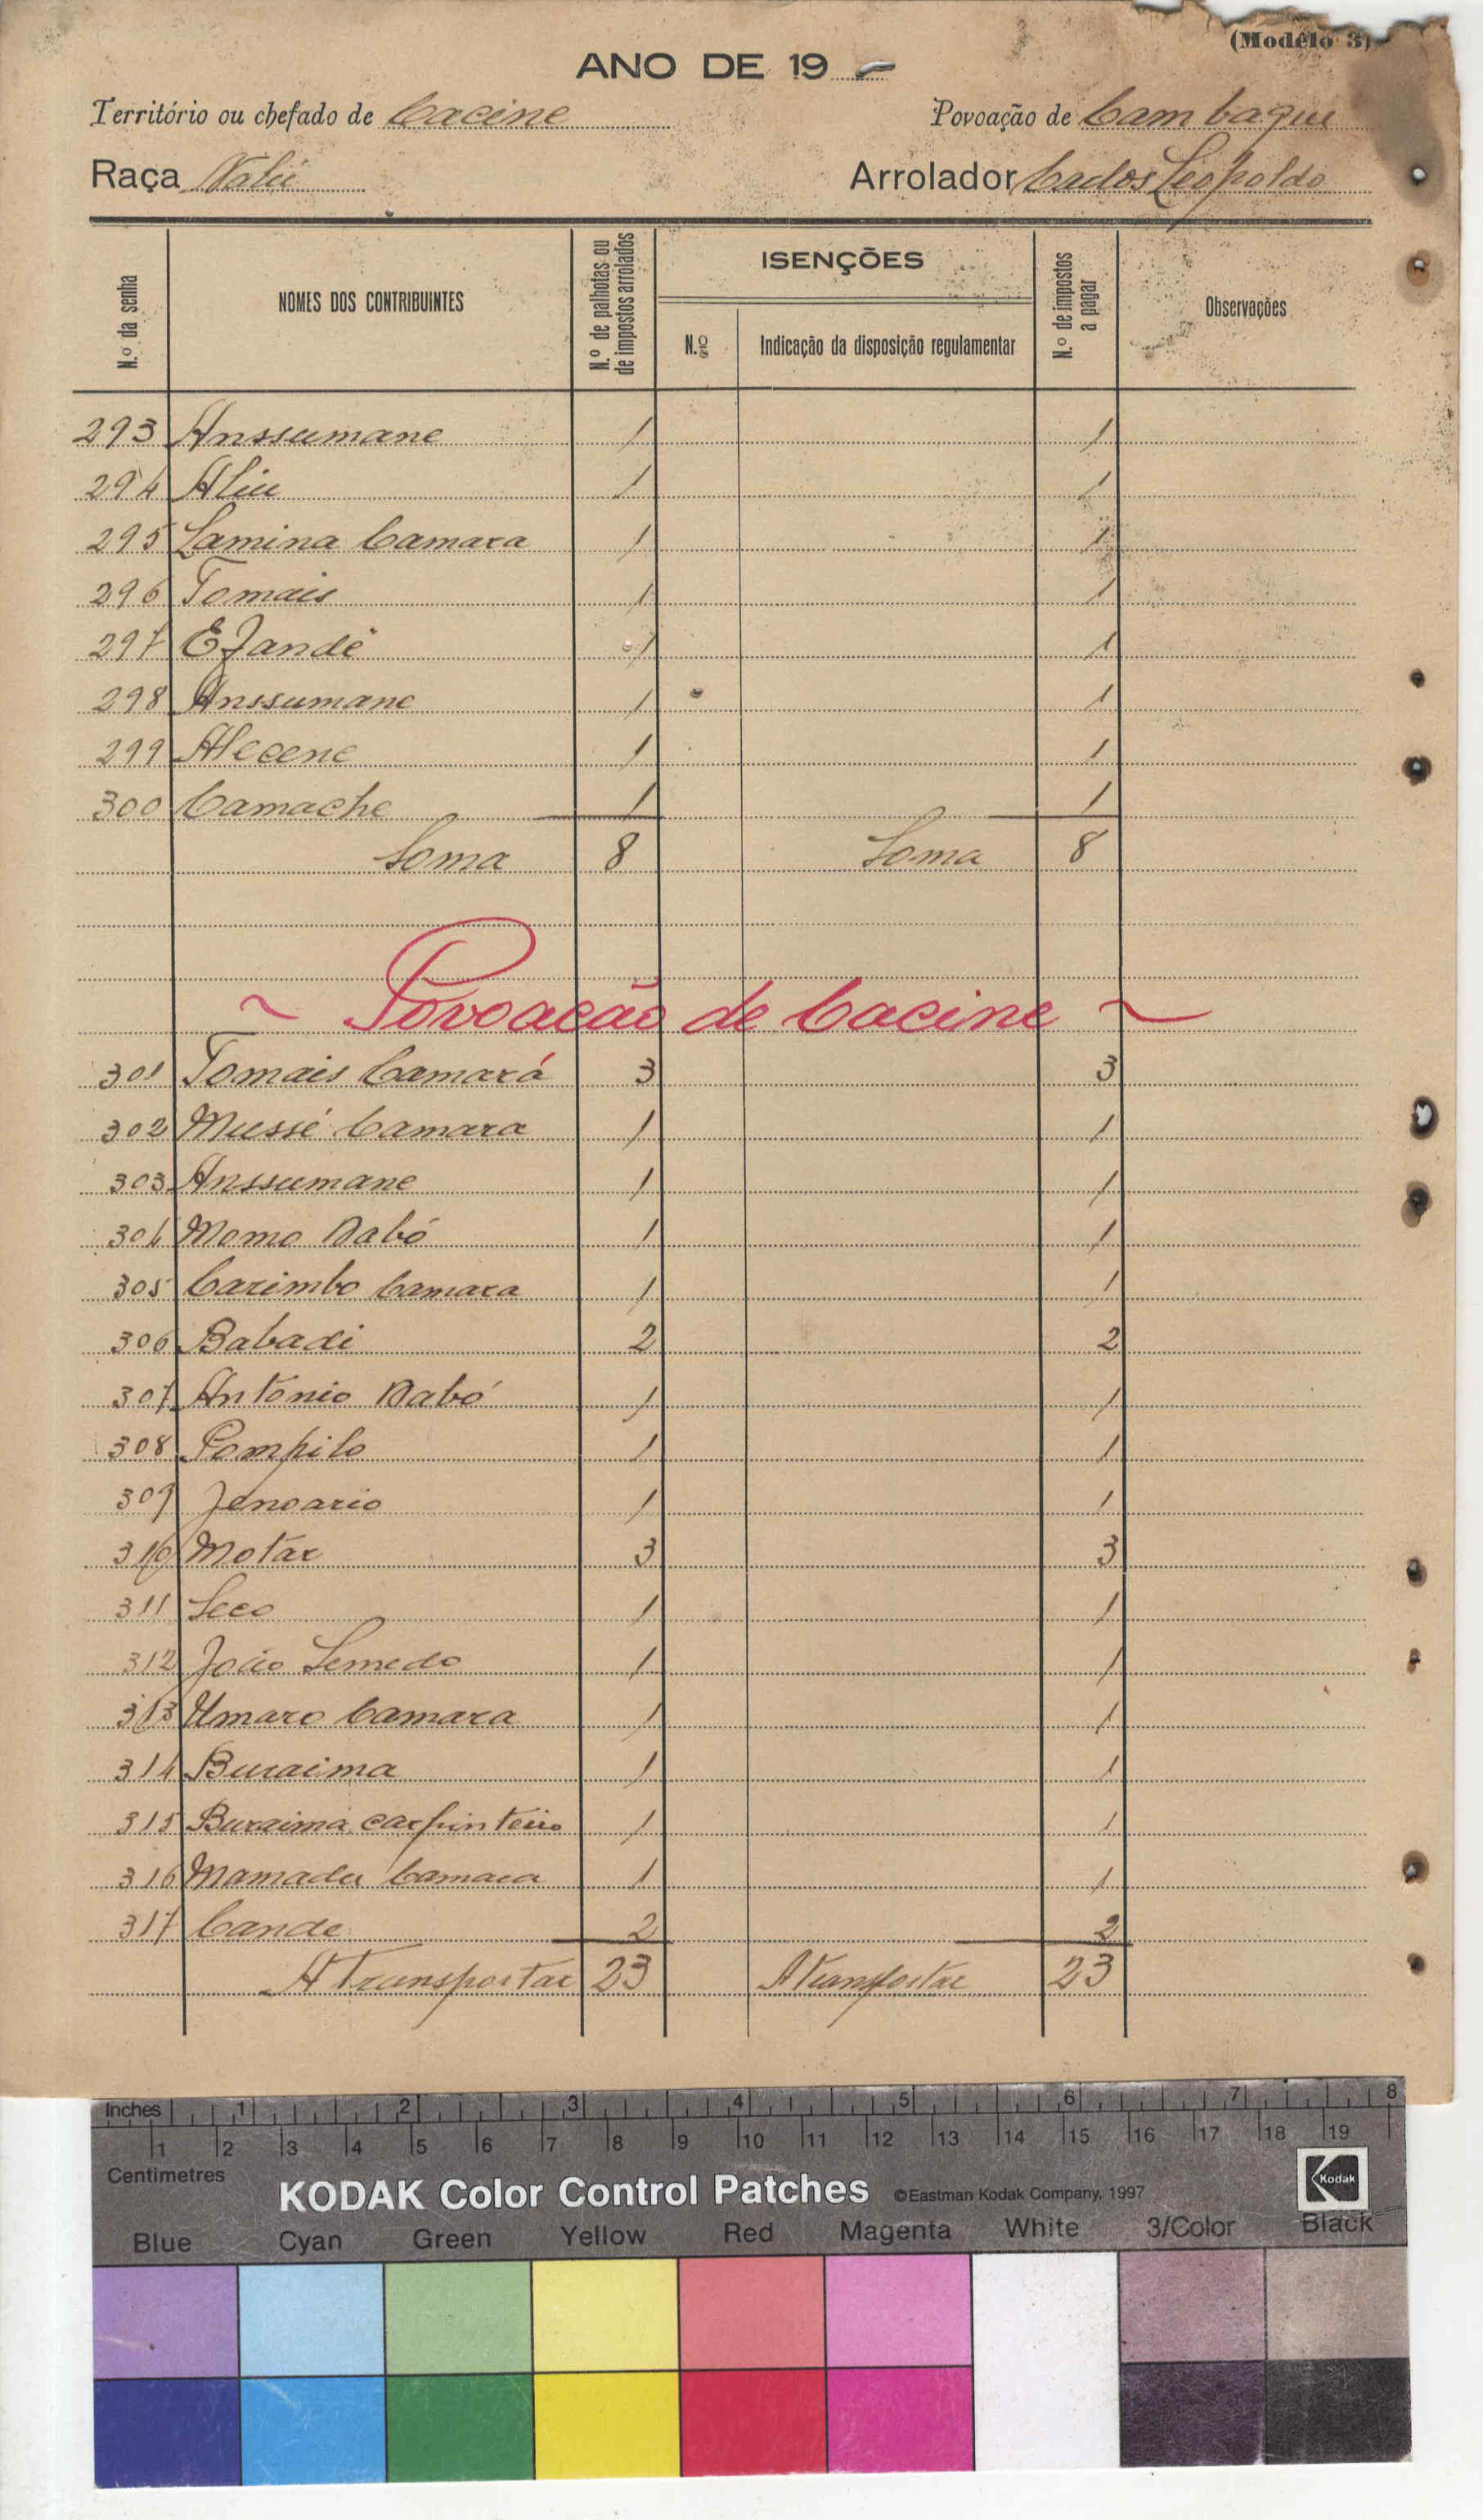 (Modêlo 3)
ANO DE 19 -
Território ou chefado de Cacine Povoação de Cambaque
Raça Nalú Arrolador Carlos Leopoldo
N.º da senha NOMES DOS CONTRIBUINTES N.º de palhotas ou de impostos arrolados ISENÇÕES N.º de impostos a pagar Observações
N.º Indicação da disposição regulamentar
293 Anssumane 1 1
294 Aliu 1 1
295 Lamina Camara 1 1
296 Tomais 1 1
297 1 1
298 Anssumane 1 1
299 Alecene 1 1
300 Camache 1 1
Soma 8 Soma 8
~ Povoacão de Cacine ~
301 Tomais Camará 3 3
302 Mussé Camara 1 1
303 Anssumane 1 1
304 Momo Dabó 1 1
305 Carimbo Camara 1 1
306 Babadi 2 2
307 António Dabó 1 1
308 Pompilo 1 1
309 Jenoario 1 1
310 Motar 3 3
311 Seco 1 1
312 João Semedo 1 1
313 Umaro Camara 1 1
314 Buraima 1 1
315 Buraima carpinteiro 1 1
316 Mamadu Camara 1 1
317 Cande 2 2
A Transportar 23 A Transportar 23
Inches 1 2 3 4 5 6 7 8
1 2 3 4 5 6 7 8 9 10 11 12 13 14 15 16 17 18 19
Centimetres
KODAK Color Control Patches ©Eastman Kodak Company, 1997 Kodak
Blue Cyan Green Yellow Red Magenta White 3/Color Black